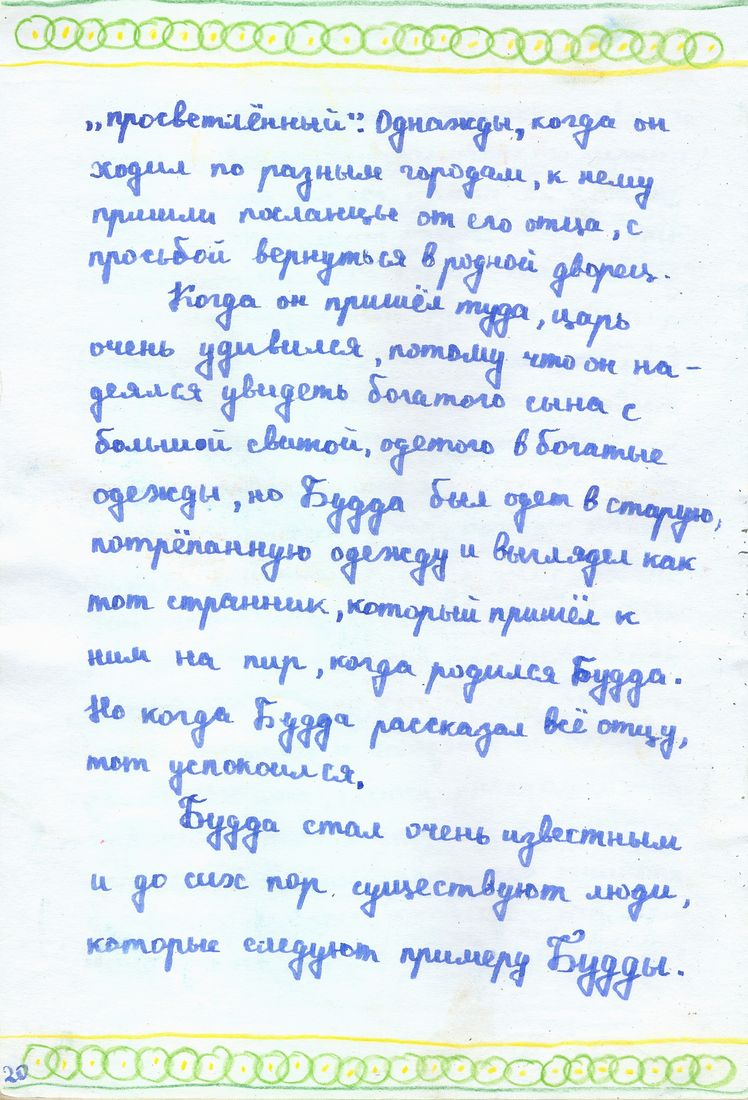 „просветлённый“. Однажды, когда он
ходил по разным городам, к нему
пришли посланцы от его отца, с
просьбой вернуться в родной дворец.
Когда он пришёл туда, царь
очень удивился, потому что он на-
деялся увидеть богатого сына с
большой свитой, одетого в богатые
одежды, но Будда был одет в старую,
потрёпанную одежду и выглядел как
тот странник, который пришёл к
ним на пир, когда родился Будда.
Но когда Будда рассказал всё отцу,
тот успокоился.
Будда стал очень известным
и до сих пор существуют люди,
которые следуют примеру Будды.
20